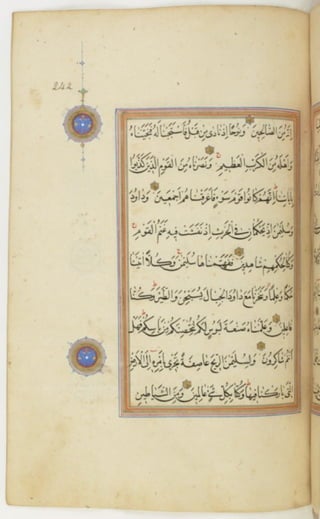 242
إنه من الصالحين ونوحا إذ نادى من قبل فاستجبنا له فنجيناه
وأهله من الكرب العظيم ونصرناه من القوم الذين كذبوا
بآياتنا إنهم كانوا قوم سوء فأغرقناهم أجمعين وداود
وسليمن إذ يحكمان في الحرث إذ نفشت فيه غنم القوم
وكنا لحكمهم شاهدين ففهمناها سليمن وكلا آتينا
حكما وعلما وسخرنا مع داود الجبال يسبحن والطير وكنا
فاعلين وعلمناه صنعة لبوس لكم لتحصنكم من بأسكم فهل
أنتم شاكرون ولسليمن الريح عاصفة تجري بأمره إلى الأرض
التي باركنا فيها وكنا بكل شيء عالمين ومن الشياطين